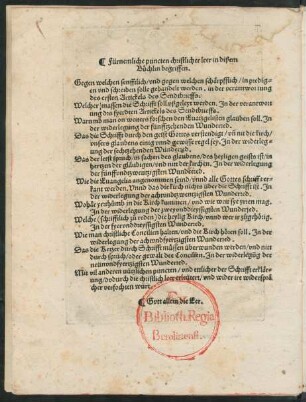 ¶ Fürnemliche puncten christlicher leer in disem
Büchlin begriffen.
Gegen welchen senfftlich/ vnd gegen welchen schärpfflich/ in predigen
vnd schreiben solle gehandelt werden, in der verantwortung
des ersten Artickels des Sendtbrieffs.
Welcher massen die Schrifft soll auszgelegt werden. In der verantwortung
des Artickels des Sendtbrieffs.
Warumb man on wunder forschen den Euangelisten glauben soll. In
der widerlegung der fünfftzehenden Wunderred.
Das die Schrifft durch den geist Gottes verstendigt/ vnd nit die
des glaubens einig vnnd gewisse regel sey. In der widerlegung
der sechtzehenden Wunderred.
Das der leist spruch/ in sachen des glaubens/ des heyligen geists ist/ in
hertzen der gläubigen/ vnd nit der In der widerlegung
der fünffundzwentzigsten Wunderred.
Wie die Euangelia angenommen seind/ vnnd alle Gottes schrifft
werden, Vnnd das die Kirch nichts über die Schrifft ist. In
der widerlegung der achtundzwentzigsten Wunderred.
Wohär yrrthumb in die Kirch kummen/ vnd wie weit sye yrren mag.
In der widerlegung der zweyunddreyssigsten Wunderred.
Welche/ schrifftlich zu reden/ zur heylig Kirch vnnd wer ir zügehörig.
In der dreyunddreyssigsten Wunderred.
Wie man christliche Concilien halten/ vnd die Kirch hören soll. In der
widerlegung der Wunderred.
Das die Ketzer durch Schrifft müssen überwunden werden/ vnd nit
durch sprüch/ oder gewalt der Concilien. In der widerlegung der
neünundfiertzigsten Wunderred.
Mit vil anderen nützlichen puncten/ vnd etlicher der Schrifft
/ dodurch die christlich leer erleütert/ vnd wider ire widerspächer
verfochten würt.
¶ Gott allein die Eer.
Ex
Biblioth. Regia
Berolinensi.